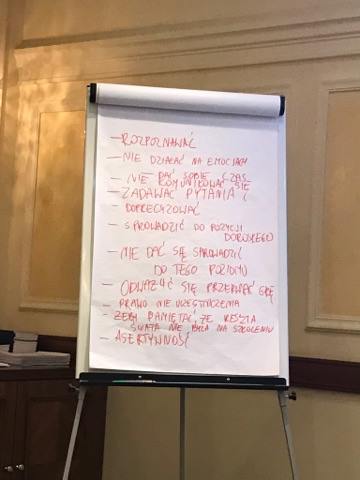 — ROZPOZNAWAĆ
— NIE DZIAŁAĆ NA EMOCJACH
— DAĆ SOBIE CZAS
NIE KOMUNIKOWAĆ SIĘ
— ZADAWAĆ PYTANIA I
— DOPRECYZOWAĆ
— SPROWADZIĆ DO POZYCJI
DOROSŁEGO
— NIE DAĆ SIĘ SPROWADZIĆ
DO TEGO POZIOMU
— ODWAŻYĆ SIĘ PRZERWAĆ GRĘ
— PRAWO NIE UCZESTNICZENIA
— ŻEBY PAMIĘTAĆ, ŻE RESZTA
ŚWIATA NIE BYŁA NA SZKOLENIU
— ASERTYWNOŚĆ